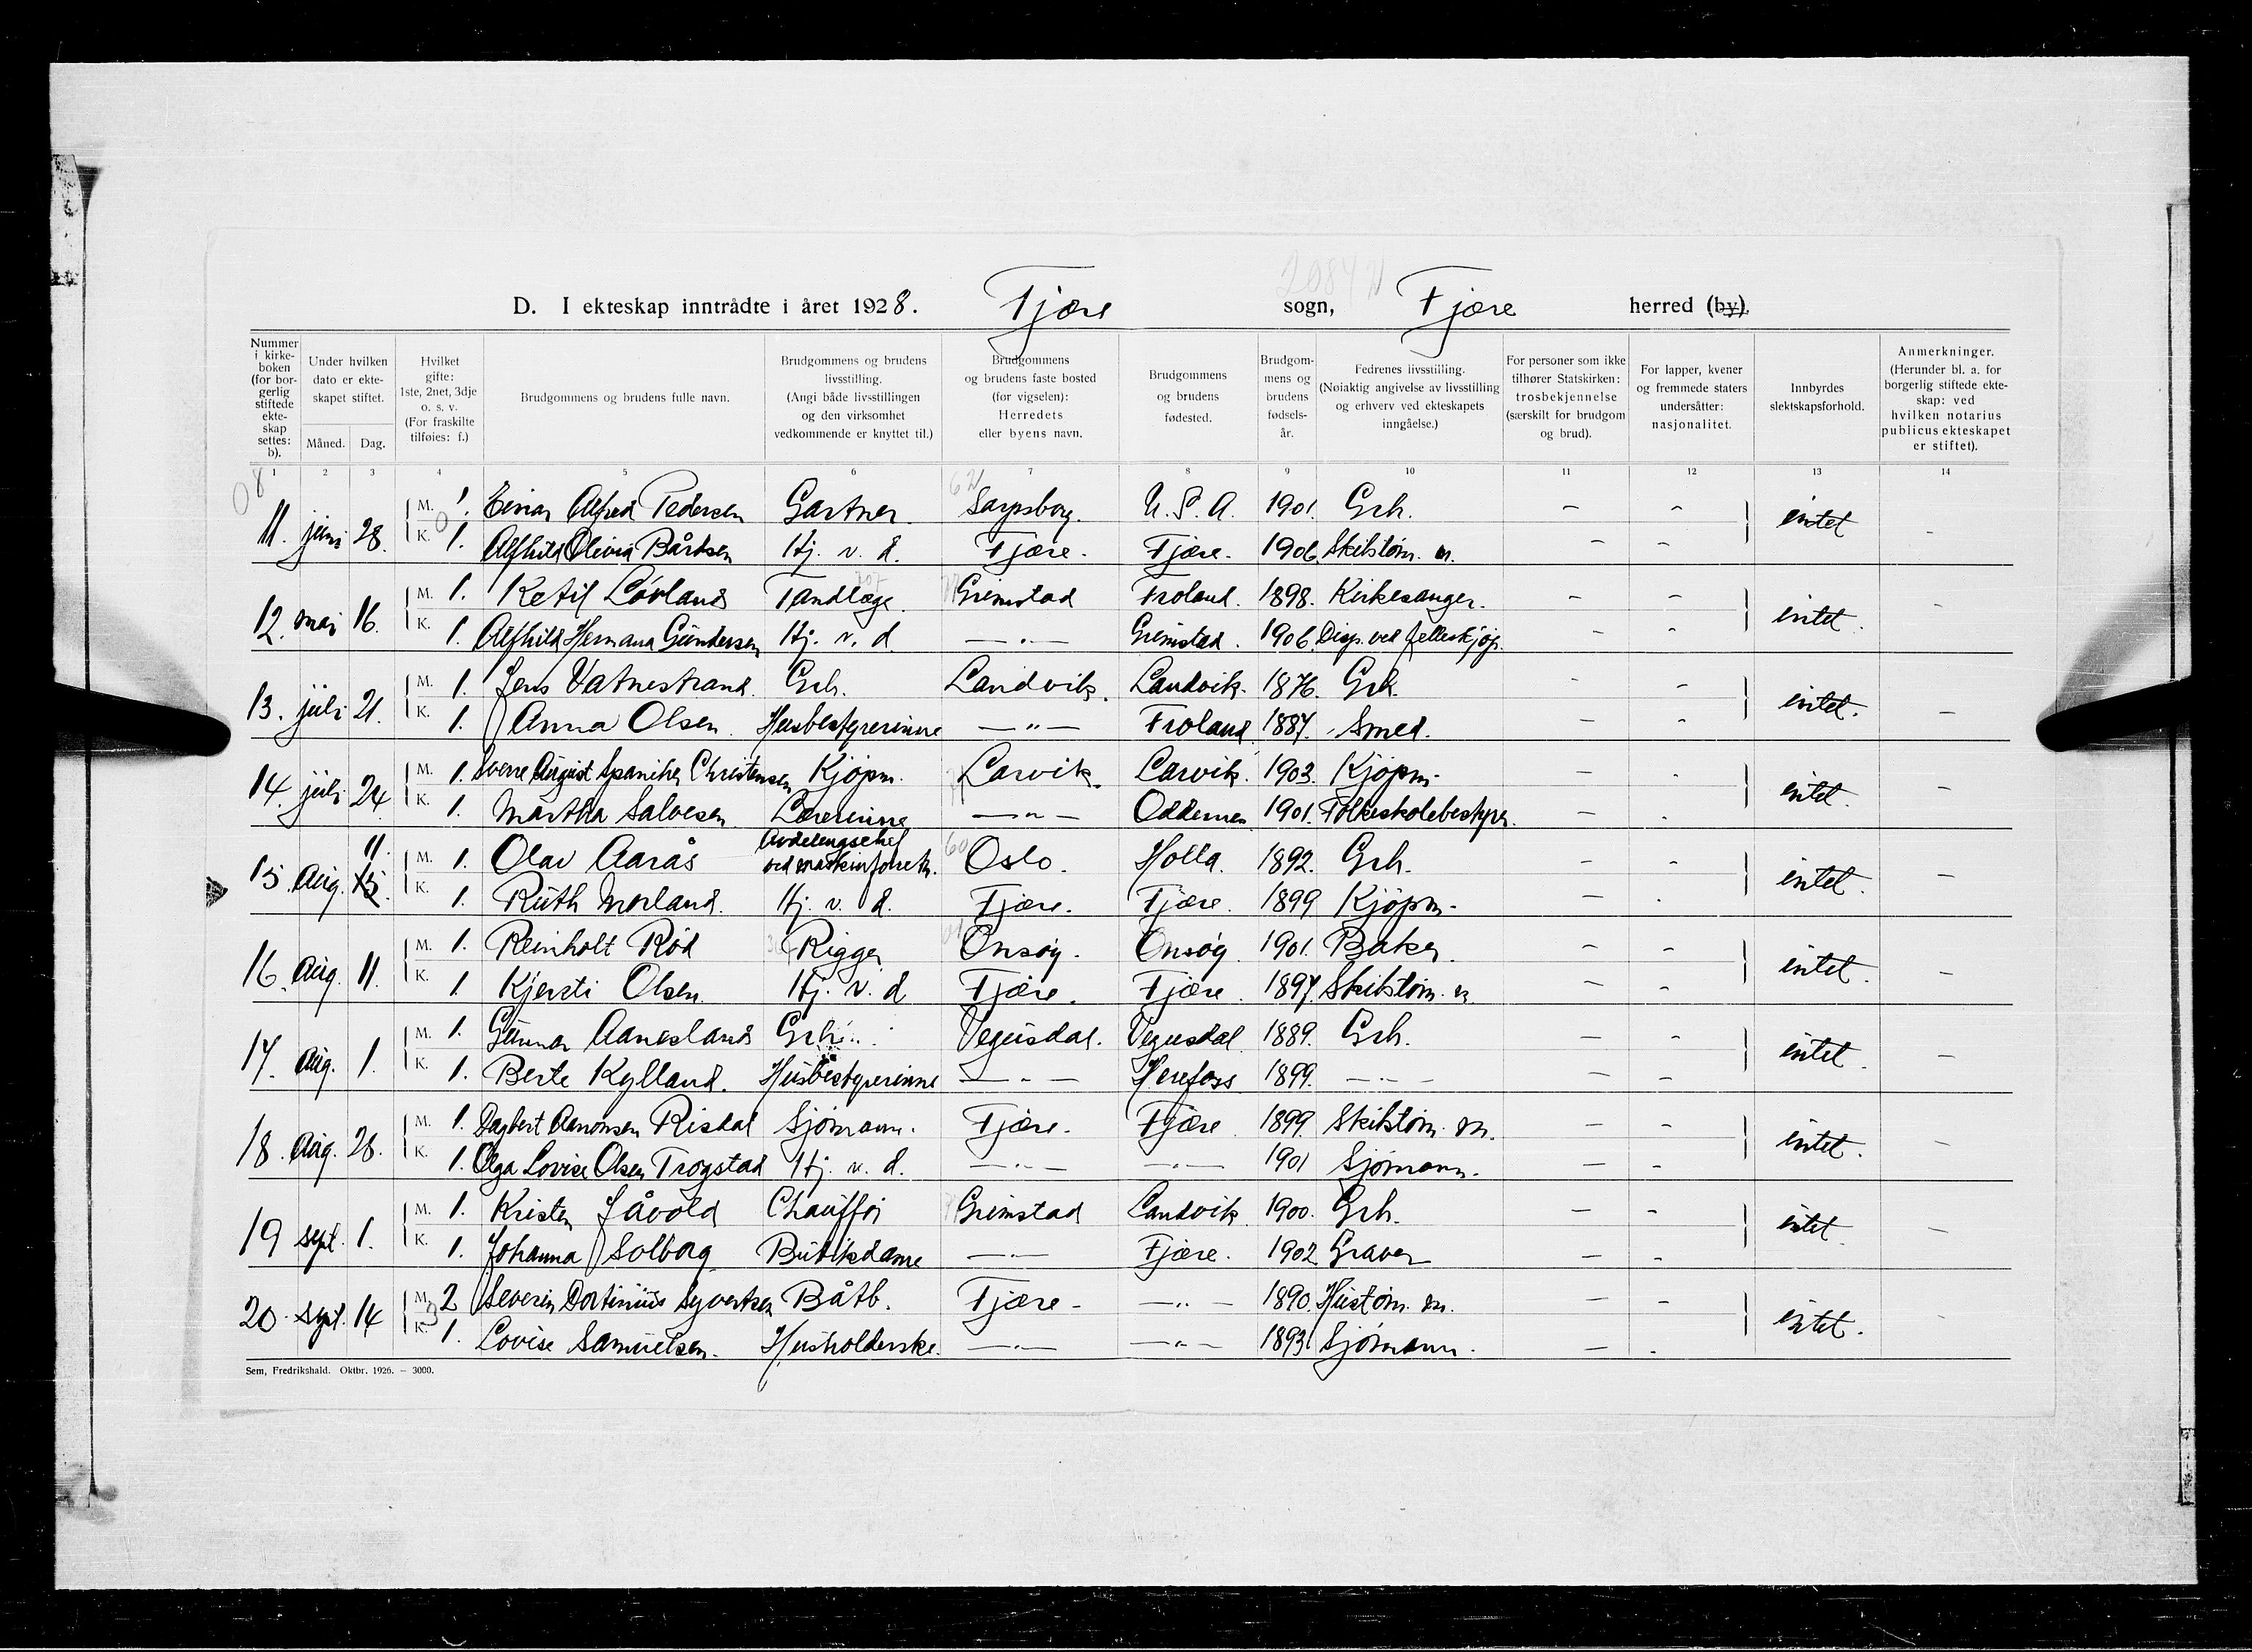 2084
D. I ekteskap inntrådte i året 1928. Fjære sogn, Fjære herred (by)
Nummer i kirkeboken (for borgerlig stiftede ekteskap settes: b).
Under hvilken dato er ekteskapet stiftet.
Måned. Dag.
Hvilket gifte: 1ste, 2net, 3dje o. s. v. (For fraskilte tilføies: f.)
Brudgommens og brudens fulle navn.
Brudgommens og brudens livsstilling. (Angi både livsstillingen og den virksomhet vedkommende er knyttet til.)
Brudgommens og brudens faste bosted (før vigselen): Herredets eller byens navn.
Brudgommens og brudens fødested.
Brudgommens og brudens fødselsår.
Fedrenes livsstilling. (Nøiaktig angivelse av livsstilling og erhverv ved ekteskapets inngåelse.)
For personer som ikke tilhører Statskirken: trosbekjennelse (særskilt for brudgom og brud).
For lapper, kvener og fremmede staters undersåtter: nasjonalitet.
Innbyrdes slektskapsforhold.
Anmerkninger. (Herunder bl. a. for borgerlig stiftede ekteskap: ved hvilken notarius publicus ekteskapet er stiftet).
1 2 3 4 5 6 7 8 9 10 11 12 13 14
11. juni 28. M. 1. Einar Alfred Pedersen Gartner. Sarpsborg. U. S. A. 1901. Grb. – – intet –
K. 1. Alfhild Olivia Bårdsen Hj. v. d. Fjære. Fjære. 1906. Skibstøm. m. – –
12. mai 16. M. 1. Ketil Løvland Tandlæge. Grimstad Froland. 1898. Kirkesanger. – – intet. –
K. 1. Alfhild Hermana Gundersen Hj. v. d. —"— Grimstad. 1906. Disp. ved felleskjøp. – –
13. juli 21. M. 1. Jens Vatnestrand. Grb. Landvik. Landvik. 1876. Grb. – – intet. –
K. 1. Anna Olsen. Husbestyrerinne —"— Froland. 1887. Smed. – –
14. juli 24. M. 1. Sverre August Spaniher Christensen Kjøpm. Larvik. Larvik. 1903. Kjøpm. – – intet. –
K. 1. Martha Salvesen. Lærerinne —"— Oddernes 1901. Folkeskolebestyrer. – –
15. Aug. 11. 15. M. 1. Olav Aarås Avdelingschef ved maskinforretn. Oslo. Holla. 1892. Grb. – – intet. –
K. 1. Ruth Morland. Hj. v. d. Fjære. Fjære. 1899 Kjøpm. – –
16. Aug. 11. M. 1. Reinholt Rød Rigger Onsøy. Onsøy. 1901. Baker. – – intet. –
K. 1. Kjersti Olsen. Hj. v. d. Fjære. Fjære. 1897. Skibstøm. m. – –
17. Aug. 1. M. 1. Gunnar Aanesland Grb. Vegusdal. Vegusdal. 1889. Grb. – – intet. –
K. 1. Berte Kylland. Husbestyrerinne —"— Herefoss 1899. —"— – –
18. Aug. 28. M. 1. Dagbert Aanonsen Risdal Sjømann. Fjære. Fjære. 1899. Skibstøm. m. – – intet. –
K. 1. Olga Lovise Olsen Trogstad Hj. v. d. —"— —"— 1901 Sjømann. – –
19 sept. 1. M. 1. Kristen Jåvold Chauffør Grimstad Landvik 1900. Grb. – – intet –
K. 1. Johanna Solborg Butikdame —"— Fjære. 1902 Graver – –
20. sept. 14 M. 2 Severin Dortinius Syvertsen Båtb. Fjære —"— 1890. Hustøm. m. – – intet. –
K. 1. Lovise Samuelsen. Husholderske. —"— —"— 1893. Sjømann. – –
Sem, Fredrikshald. Oktbr. 1926. – 3000.